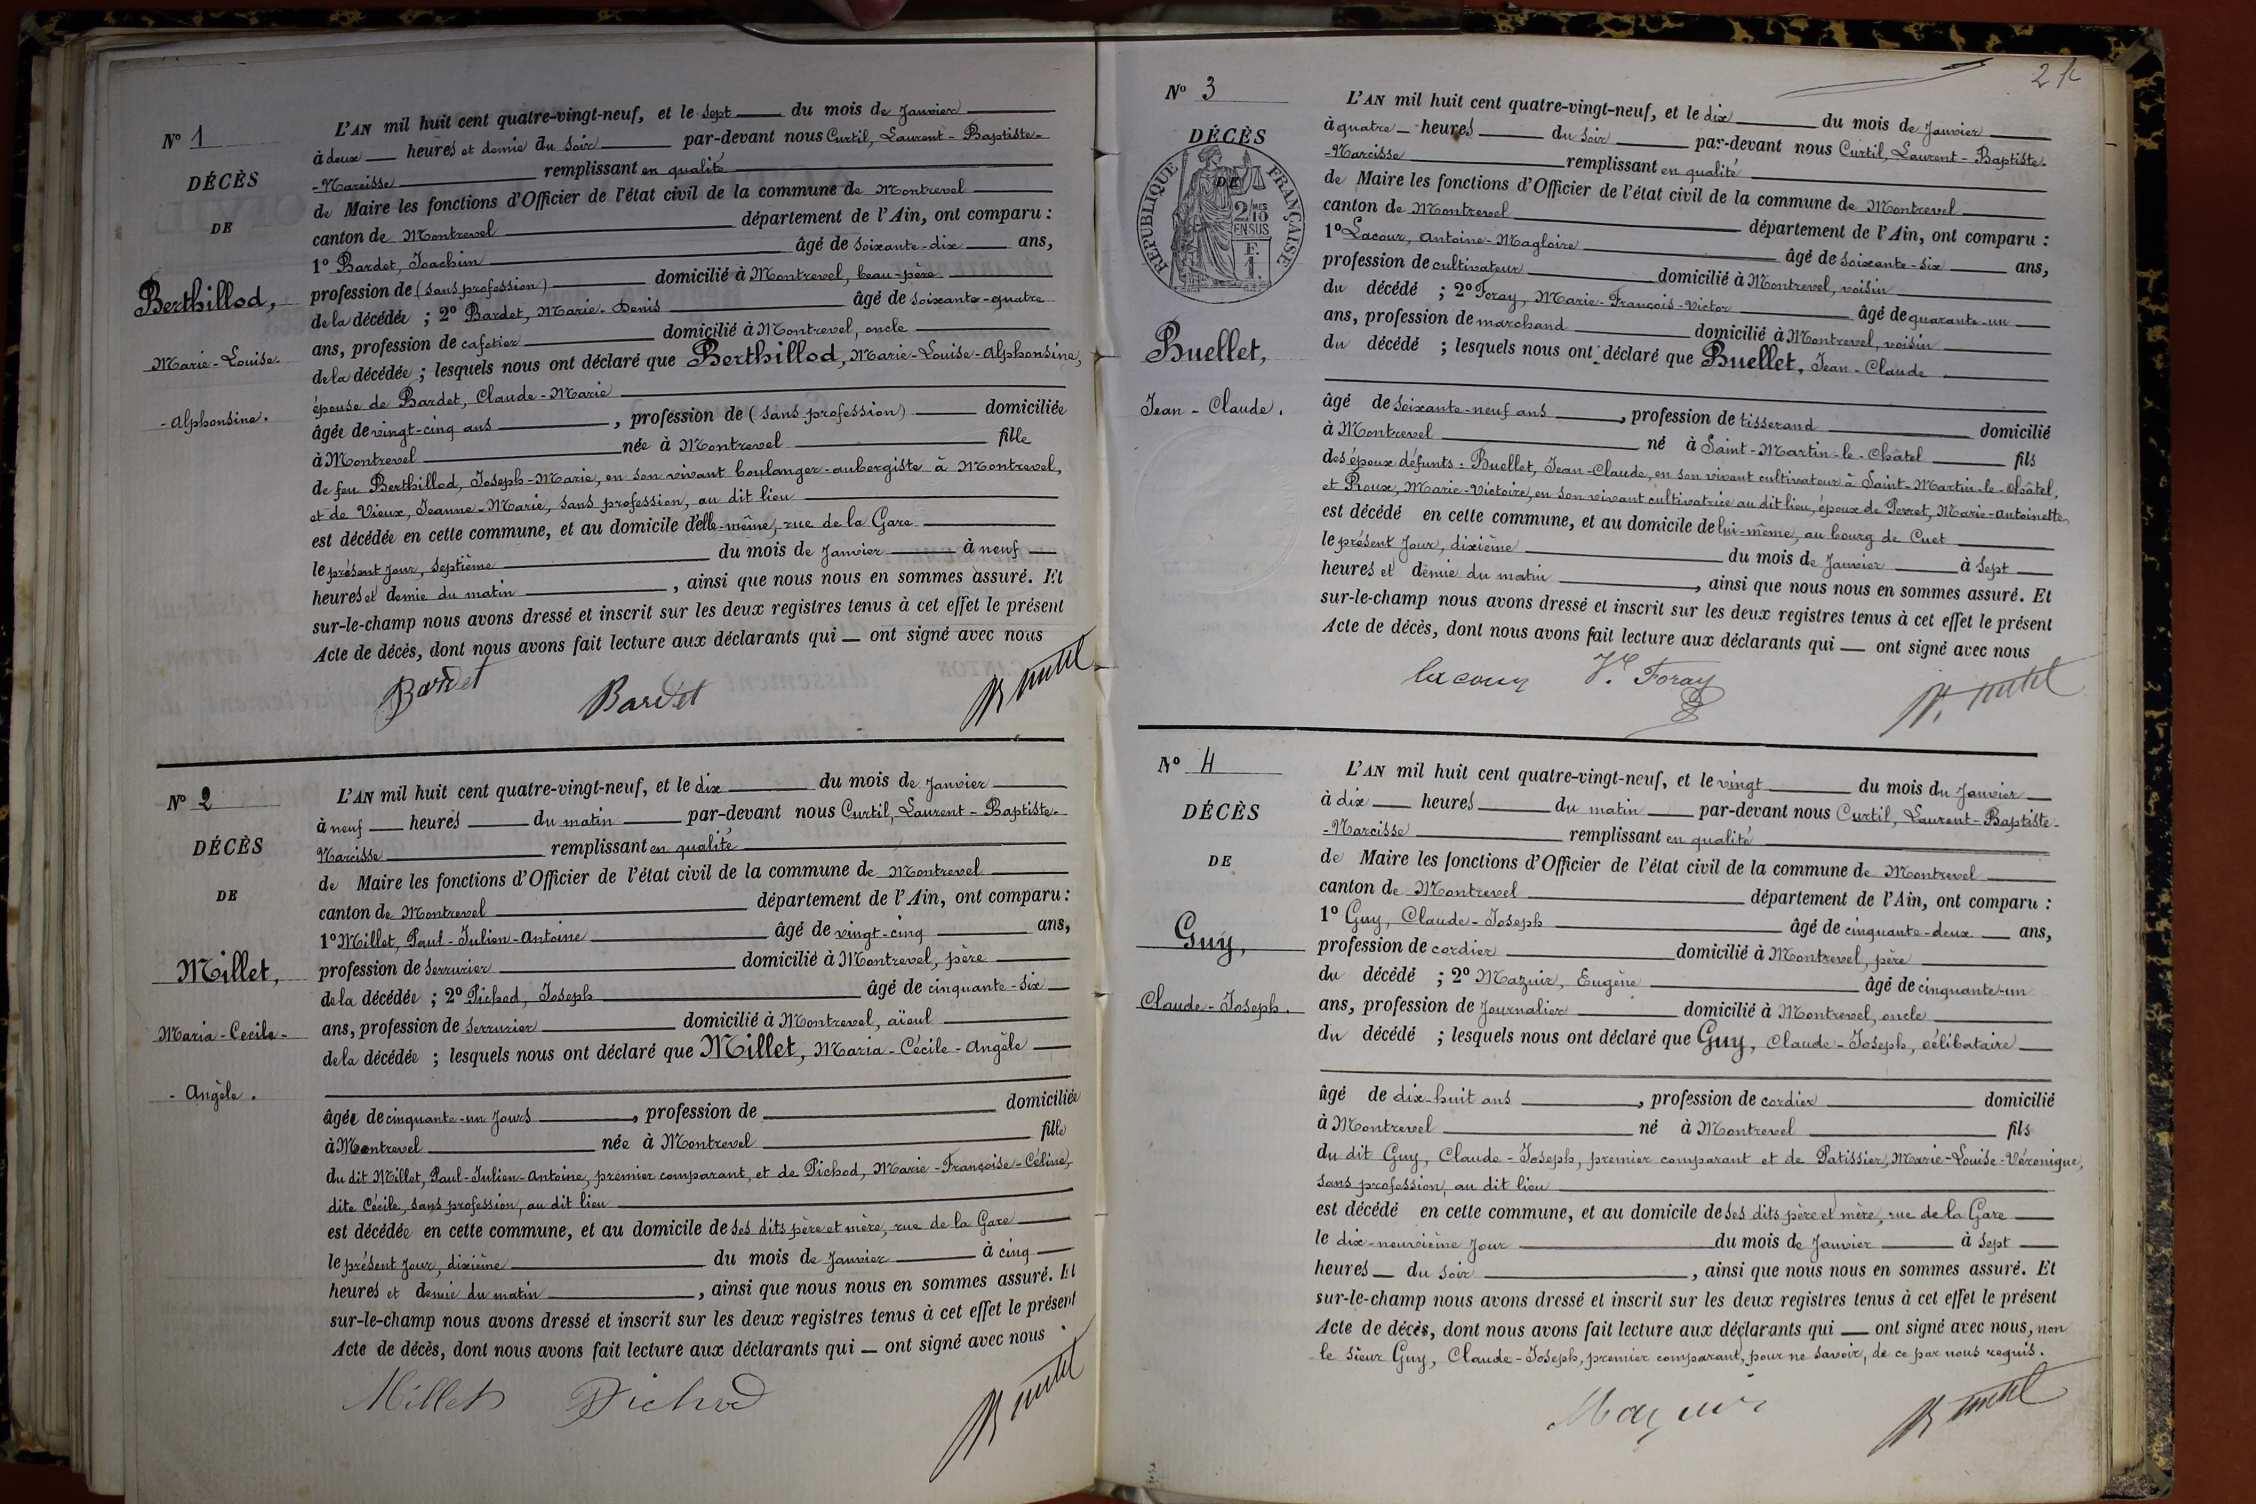 N° 1
DÉCÈS
DE
Berthillod,
Marie-Louise-
-Alphonsine.
L'AN mil huit cent quatre-vingt-neuf, et le sept du mois de Janvier
à deux heures et demie du soir par-devant nous Curtil, Laurent-Baptiste-
-Narcisse remplissant en qualité
de Maire les fonctions d'Officier de l'état civil de la commune de Montrevel
canton de Montrevel département de l'Ain, ont comparu :
1° Bardet, Joachim âgé de soixante-dix ans,
profession de (sans profession) domicilié à Montrevel, beau-père
de la décédée ; 2° Bardet, Marie-Denis âgé de soixante-quatre
ans, profession de cafetier domicilié à Montrevel, oncle
de la décédée ; lesquels nous ont déclaré que Berthillod, Marie-Louise-Alphonsine,
épouse de Bardet, Claude-Marie
âgée de vingt-cinq ans , profession de (sans profession) domiciliée
à Montrevel née à Montrevel fille
de feu Berthillod, Joseph-Marie, en son vivant boulanger-aubergiste à Montrevel,
et de Vieux, Jeanne-Marie, sans profession, au dit lieu
est décédée en cette commune, et au domicile d'elle-même, rue de la Gare
le présent jour, septième du mois de Janvier à neuf
heures et demie du matin , ainsi que nous nous en sommes assuré. Et
sur-le-champ nous avons dressé et inscrit sur les deux registres tenus à cet effet le présent
Acte de décès, dont nous avons fait lecture aux déclarants qui ont signé avec nous
Bardet Bardet
N° 2
DÉCÈS
DE
Millet,
Maria-Cecile-
-Angèle.
L'AN mil huit cent quatre-vingt-neuf, et le dix du mois de Janvier
à neuf heures du matin par-devant nous Curtil, Laurent-Baptiste-
Narcisse remplissant en qualité
de Maire les fonctions d'Officier de l'état civil de la commune de Montrevel
canton de Montrevel département de l'Ain, ont comparu :
1° Millet, Paul-Julien-Antoine âgé de vingt-cinq ans,
profession de serrurier domicilié à Montrevel, père
de la décédée ; 2° Pichod, Joseph âgé de cinquante-six
ans, profession de serrurier domicilié à Montrevel, aïeul
de la décédée ; lesquels nous ont déclaré que Millet, Maria-Cécile-Angèle
âgée de cinquante-un jours , profession de domiciliée
à Montrevel née à Montrevel fille
du dit Millet, Paul-Julien-Antoine, premier comparant, et de Pichod, Marie-Françoise-Céline,
dite Cécile, sans profession, au dit lieu
est décédée en cette commune, et au domicile de ses dits père et mère, rue de la Gare
le présent jour, dixième du mois de Janvier à cinq
heures et demie du matin , ainsi que nous nous en sommes assuré. Et
sur-le-champ nous avons dressé et inscrit sur les deux registres tenus à cet effet le présent
Acte de décès, dont nous avons fait lecture aux déclarants qui ont signé avec nous
Millet Pichod
N° 3
DÉCÈS
DE
RÉPUBLIQUE FRANÇAISE
2/10
EN SUS
F.
1.
Buellet,
Jean-Claude.
L'AN mil huit cent quatre-vingt-neuf, et le dix du mois de Janvier
à quatre heures du soir par-devant nous Curtil, Laurent-Baptiste-
-Narcisse remplissant en qualité
de Maire les fonctions d'Officier de l'état civil de la commune de Montrevel
canton de Montrevel département de l'Ain, ont comparu :
1° Lacour, Antoine-Magloire âgé de soixante-six ans,
profession de cultivateur domicilié à Montrevel, voisin
du décédé ; 2° Foray, Marie-François-Victor âgé de quarante-un
ans, profession de marchand domicilié à Montrevel, voisin
du décédé ; lesquels nous ont déclaré que Buellet, Jean-Claude
âgé de soixante-neuf ans , profession de tisserand domicilié
à Montrevel né à Saint-Martin-le-Châtel fils
des époux défunts : Buellet, Jean-Claude, en son vivant cultivateur à Saint-Martin-le-Châtel,
et Roux, Marie-Victoire, en son vivant cultivatrice au dit lieu, époux de Perret, Marie-Antoinette,
est décédé en cette commune, et au domicile de lui-même, au bourg de Cuet
le présent jour, dixième du mois de Janvier à sept
heures et demie du matin , ainsi que nous nous en sommes assuré. Et
sur-le-champ nous avons dressé et inscrit sur les deux registres tenus à cet effet le présent
Acte de décès, dont nous avons fait lecture aux déclarants qui ont signé avec nous
Lacour Vr. Foray
N° 4
DÉCÈS
DE
Guy,
Claude-Joseph.
L'AN mil huit cent quatre-vingt-neuf, et le vingt du mois du Janvier
à dix heures du matin par-devant nous Curtil, Laurent-Baptiste-
-Narcisse remplissant en qualité
de Maire les fonctions d'Officier de l'état civil de la commune de Montrevel
canton de Montrevel département de l'Ain, ont comparu :
1° Guy, Claude-Joseph âgé de cinquante-deux ans,
profession de cordier domicilié à Montrevel, père
du décédé ; 2° Mazuir, Eugène âgé de cinquante-un
ans, profession de journalier domicilié à Montrevel, oncle
du décédé ; lesquels nous ont déclaré que Guy, Claude-Joseph, célibataire
âgé de dix-huit ans , profession de cordier domicilié
à Montrevel né à Montrevel fils
du dit Guy, Claude-Joseph, premier comparant et de Patissier, Marie-Louise-Véronique,
sans profession, au dit lieu
est décédé en cette commune, et au domicile de ses dits père et mère, rue de la Gare
le dix-neuvième jour du mois de Janvier à sept
heures du soir , ainsi que nous nous en sommes assuré. Et
sur-le-champ nous avons dressé et inscrit sur les deux registres tenus à cet effet le présent
Acte de décès, dont nous avons fait lecture aux déclarants qui ont signé avec nous, non
le sieur Guy, Claude-Joseph, premier comparant, pour ne savoir, de ce par nous requis.
Mazuir